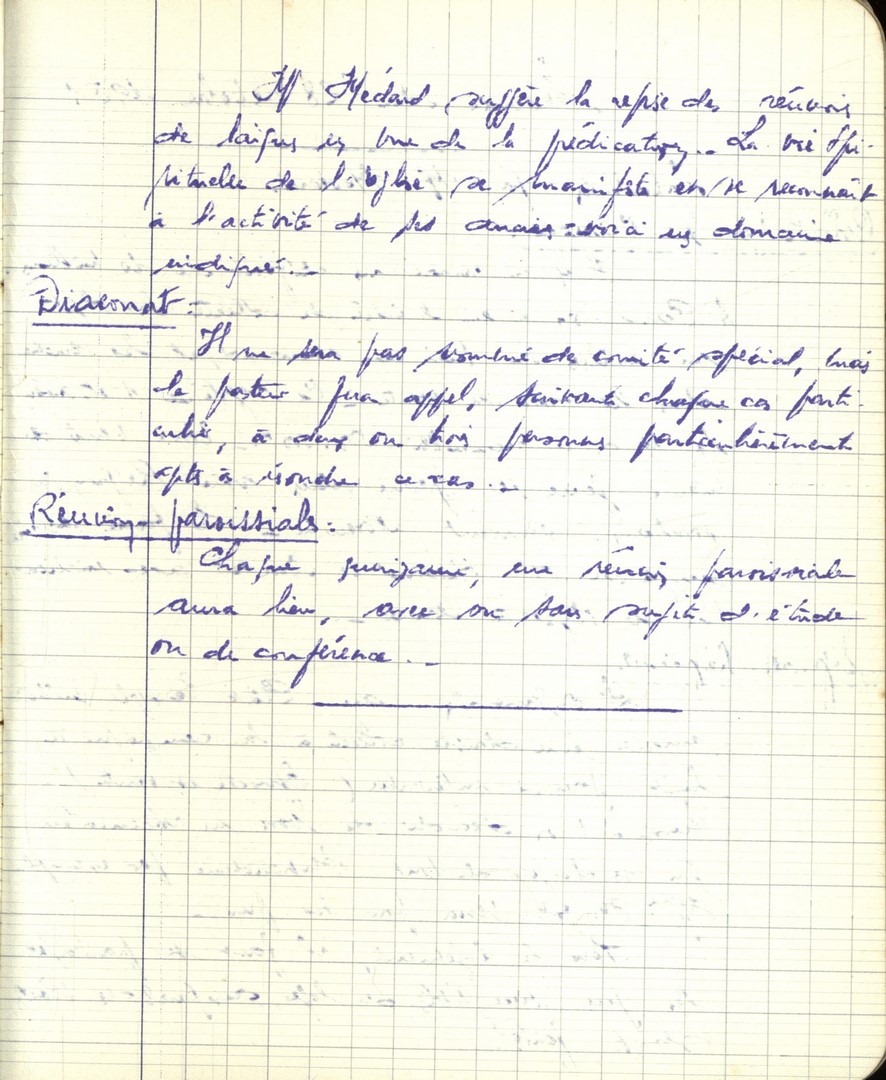 M Médard suggère la reprise des réunions
de laïques en vue de la prédication.. La vie spi-
rituelle de l'église se manifeste et se reconnaît
à l'activité de ses : voici un domaine
indiqué._
Diaconat.
Il ne sera pas nommé de comité spécial, mais
le pasteur fera appel, suivant chaque cas parti-
culier, à deux ou trois personnes particulièrement
aptes à résoudre ce cas._
Réunion paroissiale.
Chaque quinzaine, une réunion paroissiale
aura lieu, avec ou sans sujet d'étude
ou de conférence._